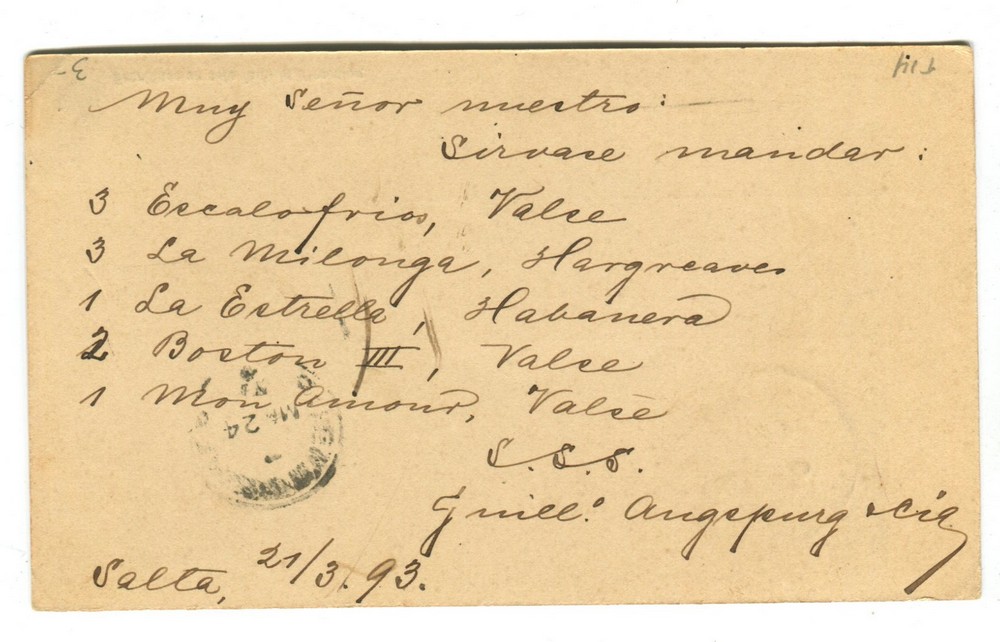 Muy Señor nuestro:
Sirvase mandar:
3 Escalofrios, Valse
3 La Milonga, Hargreaves
1 La Estrella, Habanera
2 Boston III, Valse
1 Mon Amour, Valse
S.S.S.
Guillº. Augspurg & Cia
Salta, 21/3.93.
MR 24